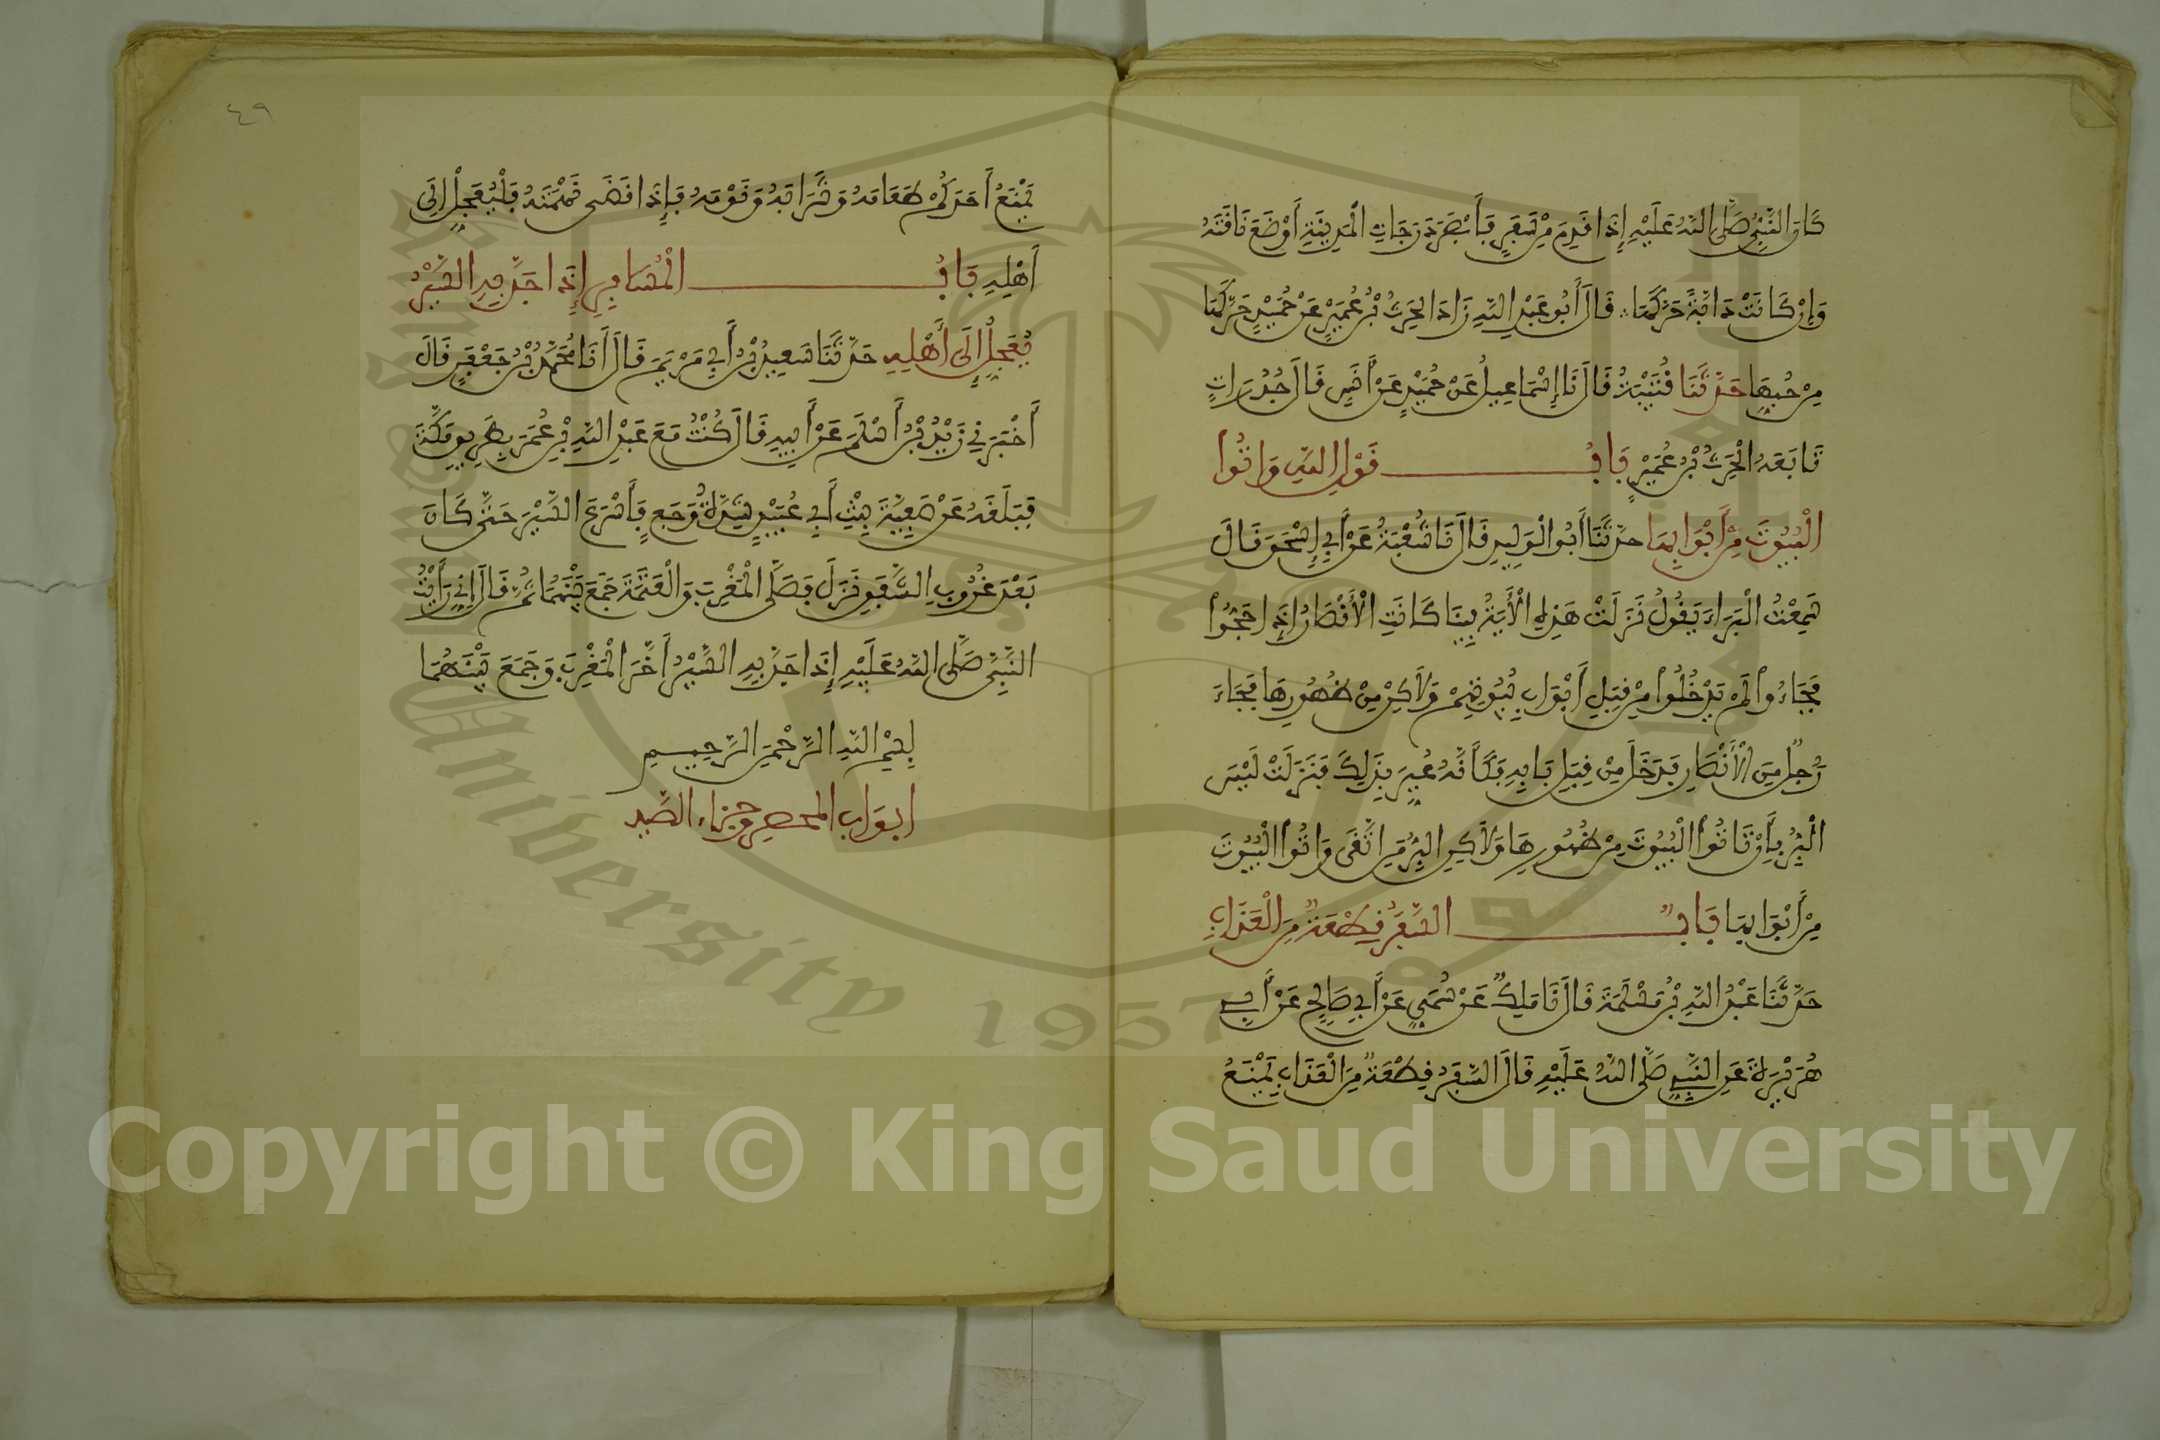 كَانَ النَّبِيُّ صَلَّى اللَّهُ عَلَيْهِ إِذَا قَدِمَ مِنْ سَفَرٍ فَأَبْصَرَ دَرَجَاتِ الْمَدِينَةِ أَوْضَعَ نَاقَتَهُ
وَإِنْ كَانَتْ دَابَّةً حَرَّكَهَا قَالَ أَبُو عَبْدِ اللَّهِ زَادَ الْحَرِثُ بْنُ عُمَيْرٍ عَنْ حُمَيْدٍ حَرَّكَهَا
مِنْ حُبِّهَا حَدَّثَنَا قُتَيْبَةُ قَالَ نَا إِسْمَاعِيلُ عَنْ حُمَيْدٍ عَنْ أَنَسٍ قَالَ جُدُرَاتِ
تَابَعَهُ الْحَرِثُ بْنُ عُمَيْرٍ بَابُ قَوْلِ اللَّهِ وَاتُوا
الْبُيُوتَ مِنْ أَبْوَابِهَا حَدَّثَنَا أَبُو الْوَلِيدِ قَالَ نَا شُعْبَةُ عَنْ أَبِي إِسْحَقَ قَالَ
سَمِعْتُ الْبَرَاءَ يَقُولُ نَزَلَتْ هَذِهِ الْأَيَةُ فِينَا كَانَتِ الْأَنْصَارُ إِذَا حَجُّوا
فَجَاءُوا لَمْ يَدْخُلُوا مِنْ قِبَلِ أَبْوَابِ بُيُوتِهِمْ وَلَاكِنْ مِنْ ظُهُورِهَا فَجَاءَ
رَجُلٌ مِنَ الْأَنْصَارِ فَدَخَلَ مِنْ قِبَلِ بَابِهِ فَكَأَنَّهُ عُيِّرَ بِذَلِكَ فَنَزَلَتْ لَيْسَ
الْبِرُّ بِأَنْ تَاتُوا الْبُيُوتَ مِنْ ظُهُورِهَا وَلَاكِنِ الْبِرُّ مَنِ اتَّقَى وَاتُوا الْبُيُوتَ
مِنْ أَبْوَابِهَا بَابٌ السَّفَرُ قِطْعَةٌ مِنَ الْعَذَابِ
حَدَّثَنَا عَبْدُ اللَّهِ بْنُ مَسْلَمَةَ قَالَ نَا مَلِكٌ عَنْ سُمَيٍّ عَنْ أَبِي صَالِحٍ عَنْ أَبِي
هُرَيْرَةَ عَنِ النَّبِيِّ صَلَّى اللَّهُ عَلَيْهِ قَالَ السَّفَرُ قِطْعَةٌ مِنَ الْعَذَابِ يَمْنَعُ
٤٩
يَمْنَعُ أَحَدَكُمْ طَعَامَهُ وَشَرَابَهُ وَنَوْمَهُ فَإِذَا قَضَى نَهْمَتَهُ فَلْيُعَجِّلْ إِلَى
أَهْلِهِ بَابُ الْمُسَافِرِ إِذَا جَدَّ بِهِ السَّيْرُ
يُعَجِّلُ إِلَى أَهْلِهِ حَدَّثَنَا سَعِيدُ بْنُ أَبِي مَرْيَمَ قَالَ أَنَا مُحَمَّدُ بْنُ جَعْفَرٍ قَالَ
أَخْبَرَنِي زَيْدُ بْنُ أَسْلَمَ عَنْ أَبِيهِ قَالَ كُنْتُ مَعَ عَبْدِ اللَّهِ بْنِ عُمَرَ بِطَرِيقِ مَكَّةَ
فَبَلَغَهُ عَنْ صَفِيَّةَ بِنْتِ أَبِي عُبَيْدٍ شِدَّةُ وَجَعٍ فَأَسْرَعَ السَّيْرَ حَتَّى كَانَ
بَعْدَ غُرُوبِ الشَّفَقِ نَزَلَ فَصَلَّى الْمَغْرِبَ وَالْعَتَمَةَ جَمَعَ بَيْنَهُمَا ثُمَّ قَالَ إِنِّي رَأَيْتُ
النَّبِيَّ صَلَّى اللَّهُ عَلَيْهِ إِذَا جَدَّ بِهِ السَّيْرُ أَخَّرَ الْمَغْرِبَ وَجَمَعَ بَيْنَهُمَا
بِسْمِ اللَّهِ الرَّحْمَنِ الرَّحِيمِ
ابواب المحصر وجزاء الصيد
King Saud University
1957
Copyright © King Saud University